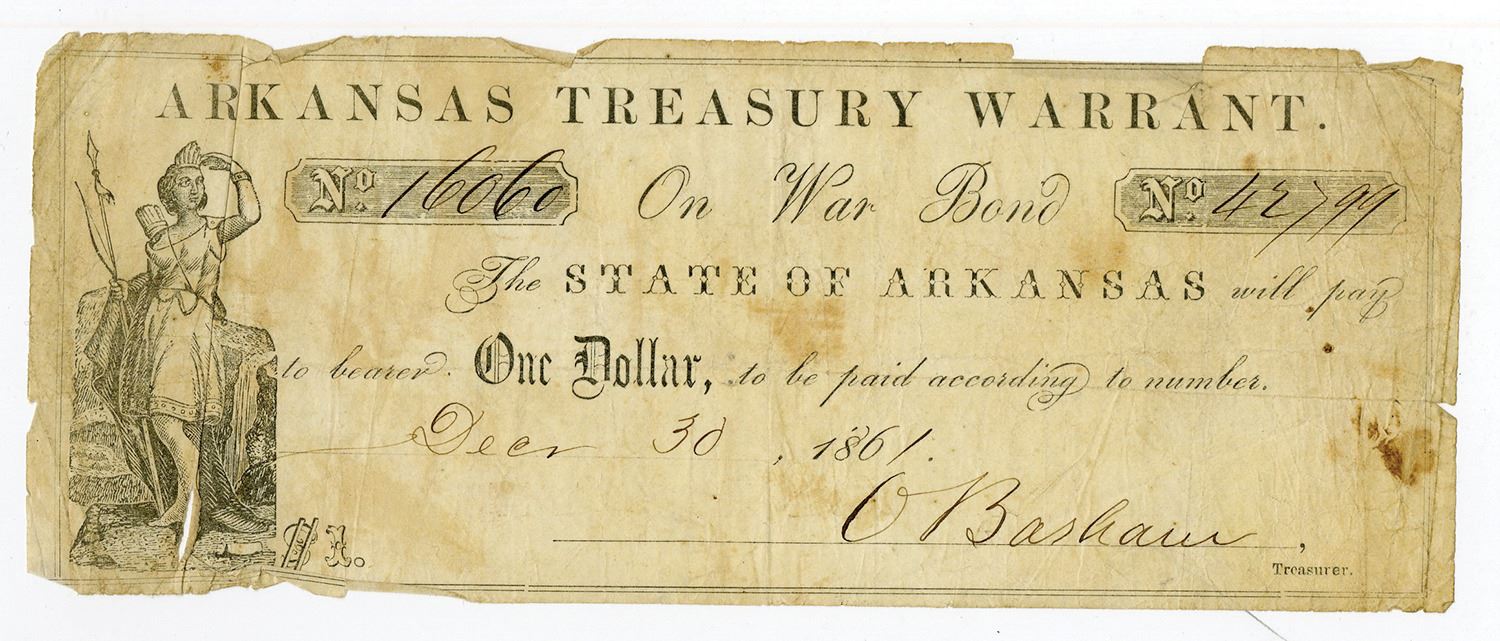 ARKANSAS TREASURY WARRANT.
No. 16060 On War Bond No. 42799
The STATE OF ARKANSAS will pay
to bearer One Dollar, to be paid according to number.
Decr 30, 1861.
O Basham,
Treasurer.
$1.